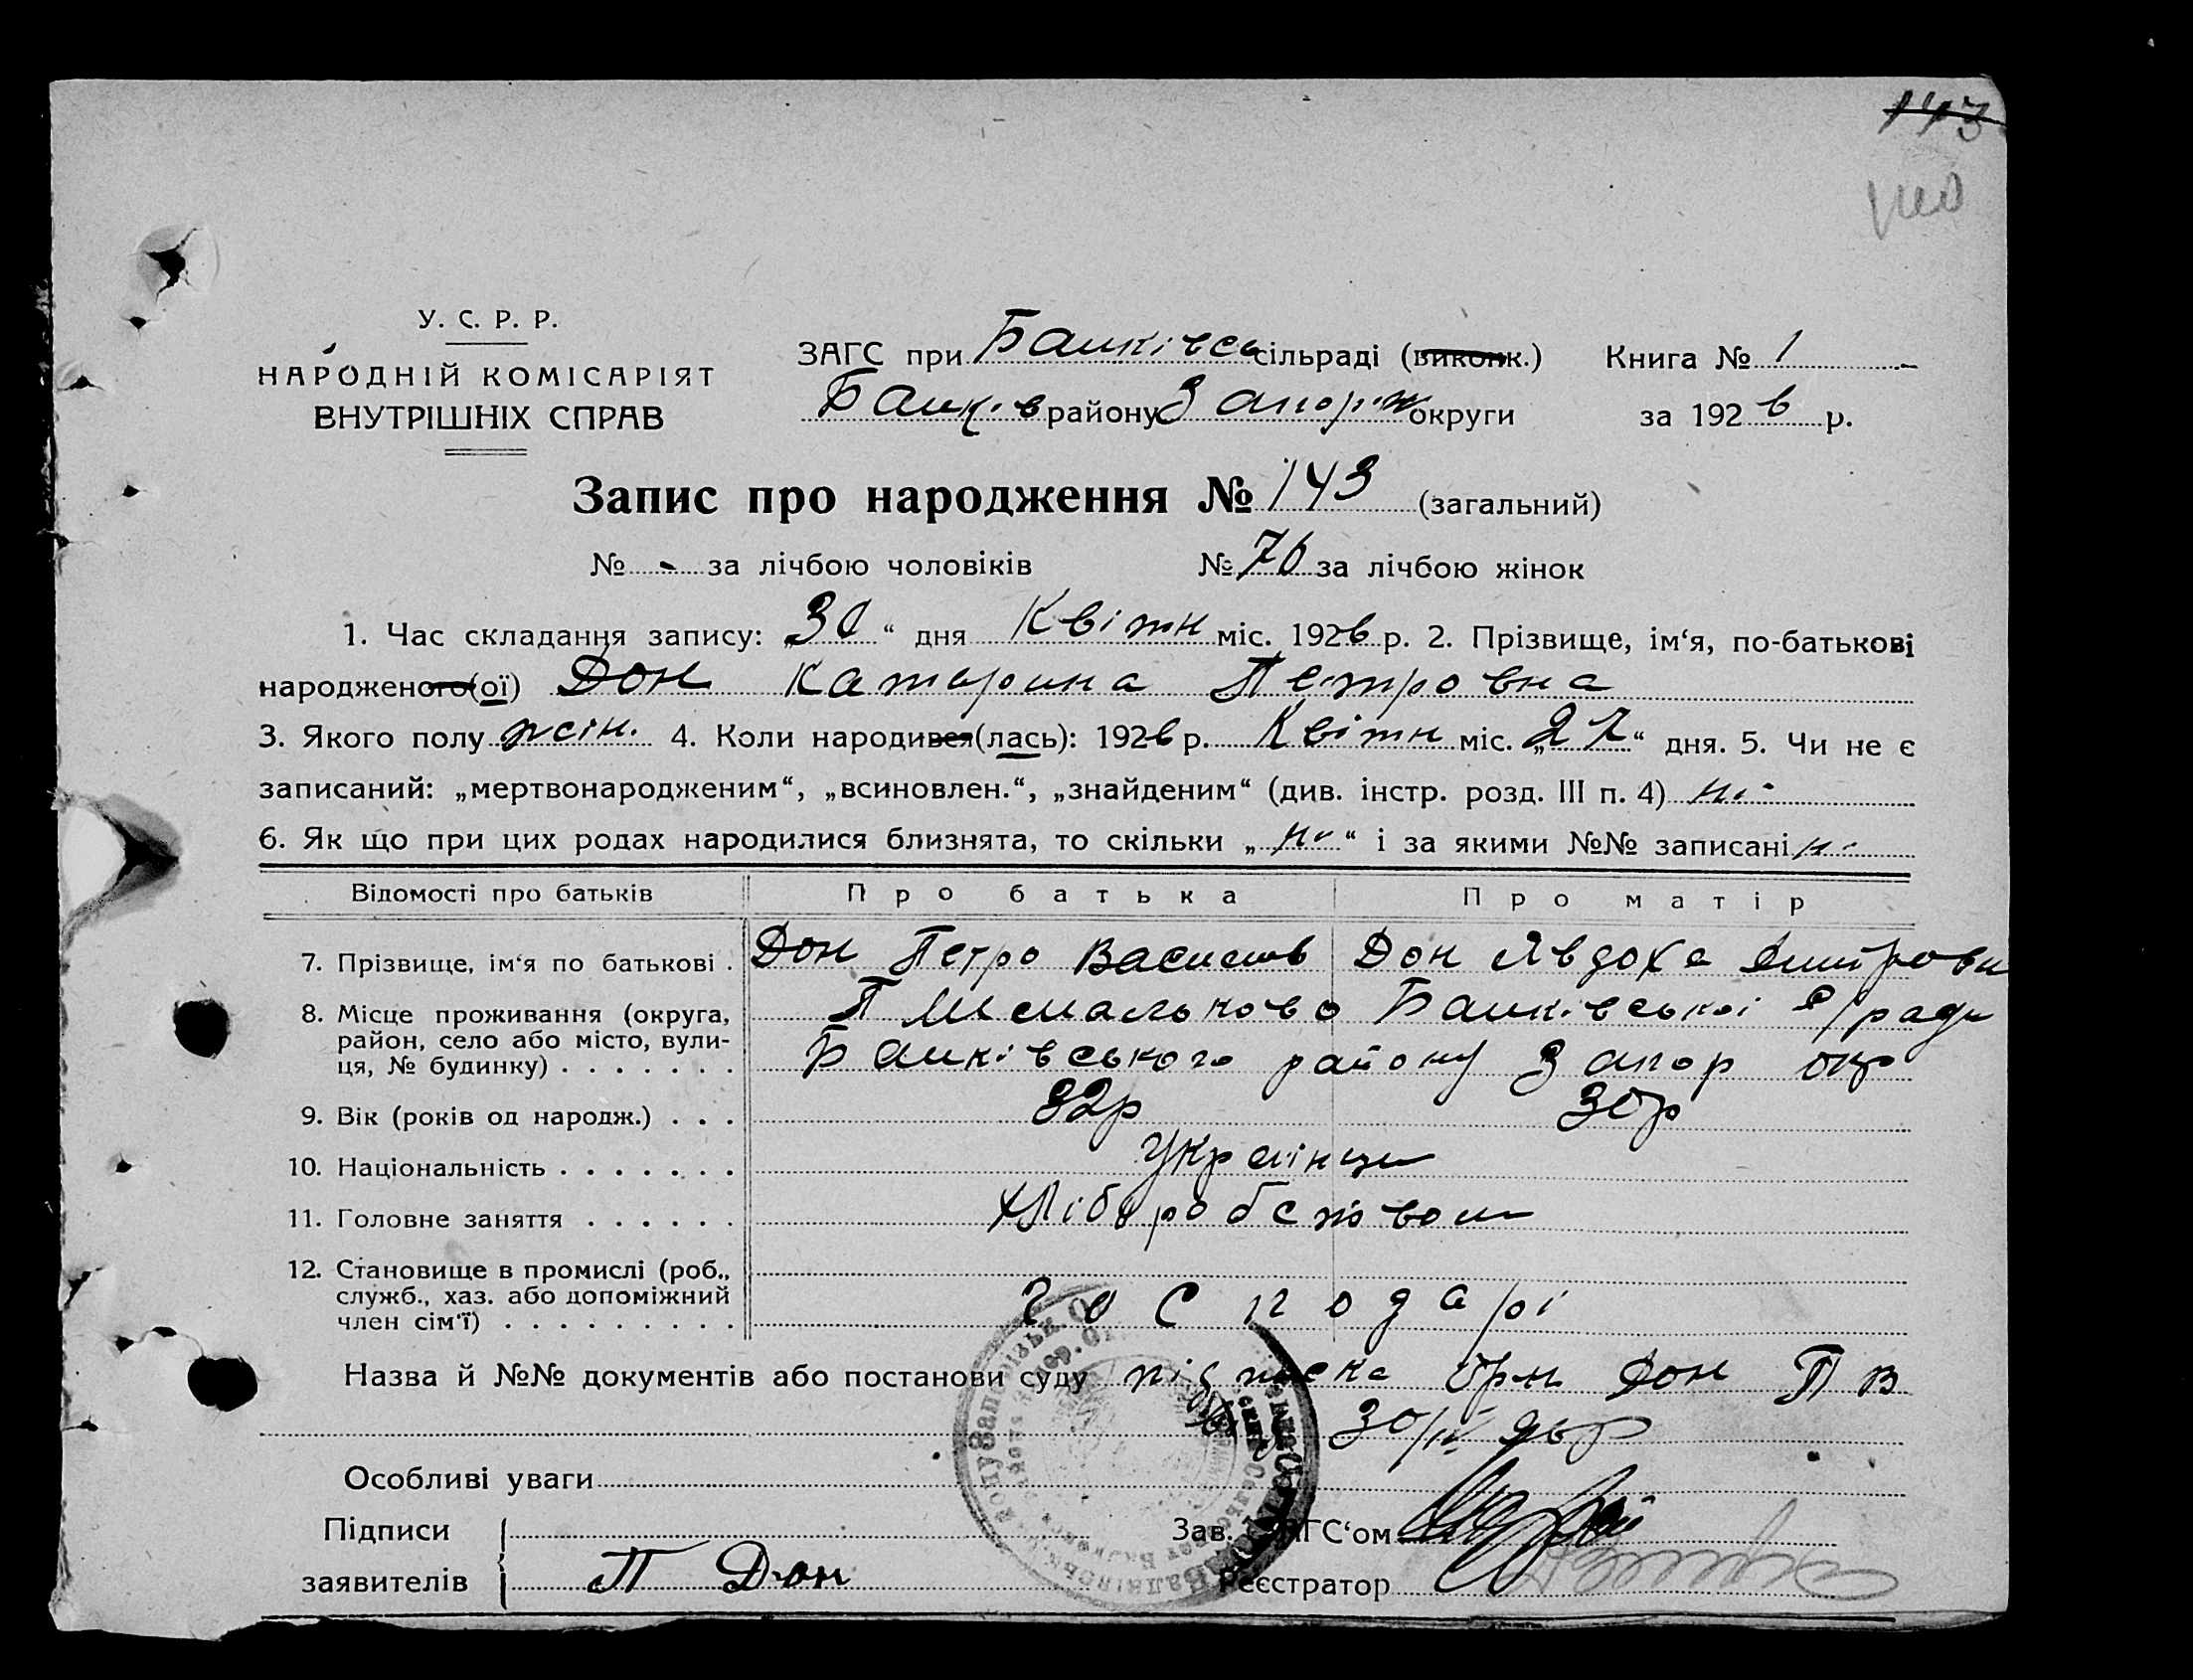 143
У. С. Р. Р.
НАРОДНІЙ КОМІСАРІЯТ
ВНУТРІШНІХ СПРАВ
ЗАГС при Балківсь сільраді (виконк.) Книга № 1
Балків району Запоріж округи за 1926 р.
Запис про народження № 143 (загальний)
№ - за лічбою чоловіків № 76 за лічбою жінок
1. Час складання запису: „30“ дня Квітн міс. 1926 р. 2. Прізвище, ім‘я, по-батькові
народженого(ої) Дон Катерина Петровна
3. Якого полу жін. 4. Коли народився(лась): 1926 р. Квітн міс. „27“ дня. 5. Чи не є
записаний: „мертвонародженим“, „всиновлен.“, „знайденим“ (див. інстр. розд. III п. 4) ні
6. Як що при цих родах народилися близнята, то скільки „ні“ і за якими №№ записані ні
Відомості про батьків Про батька Про матір
7. Прізвище, ім‘я по батькові . Дон Петро Васильов Дон Явдоха Дмитровн
8. Місце проживання (округа, П Балківської с/ради
район, село або місто, вули- Балківського району Запор окр
ця, № будинку) . . . . . . .
9. Вік (років од народж.) . . . 32р 30р
10. Національність . . . . . . . Українци
11. Головне заняття . . . . . . Хліборобством
12. Становище в промислі (роб.,
служб., хаз. або допоміжний господарі
член сім‘ї) . . . . . . . . .
Назва й №№ документів або постанови суду підписка Дон П В
30/IV 26р
Особливі уваги
Підписи Зав. ЗАГС‘ом
заявителів П Дон Реєстратор